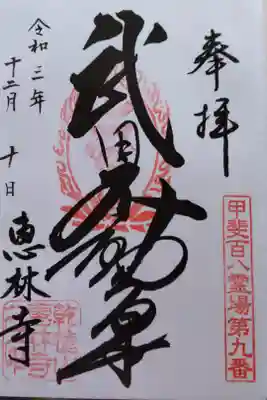 奉拝
甲斐百八霊場第九番
武田不動尊
令和三年
十二月 十日
恵林寺